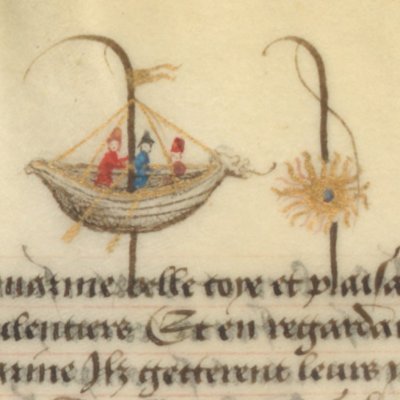 marine belle coye et plaisa
ulentiers Et en regarda
arine Ilz getterent leurs